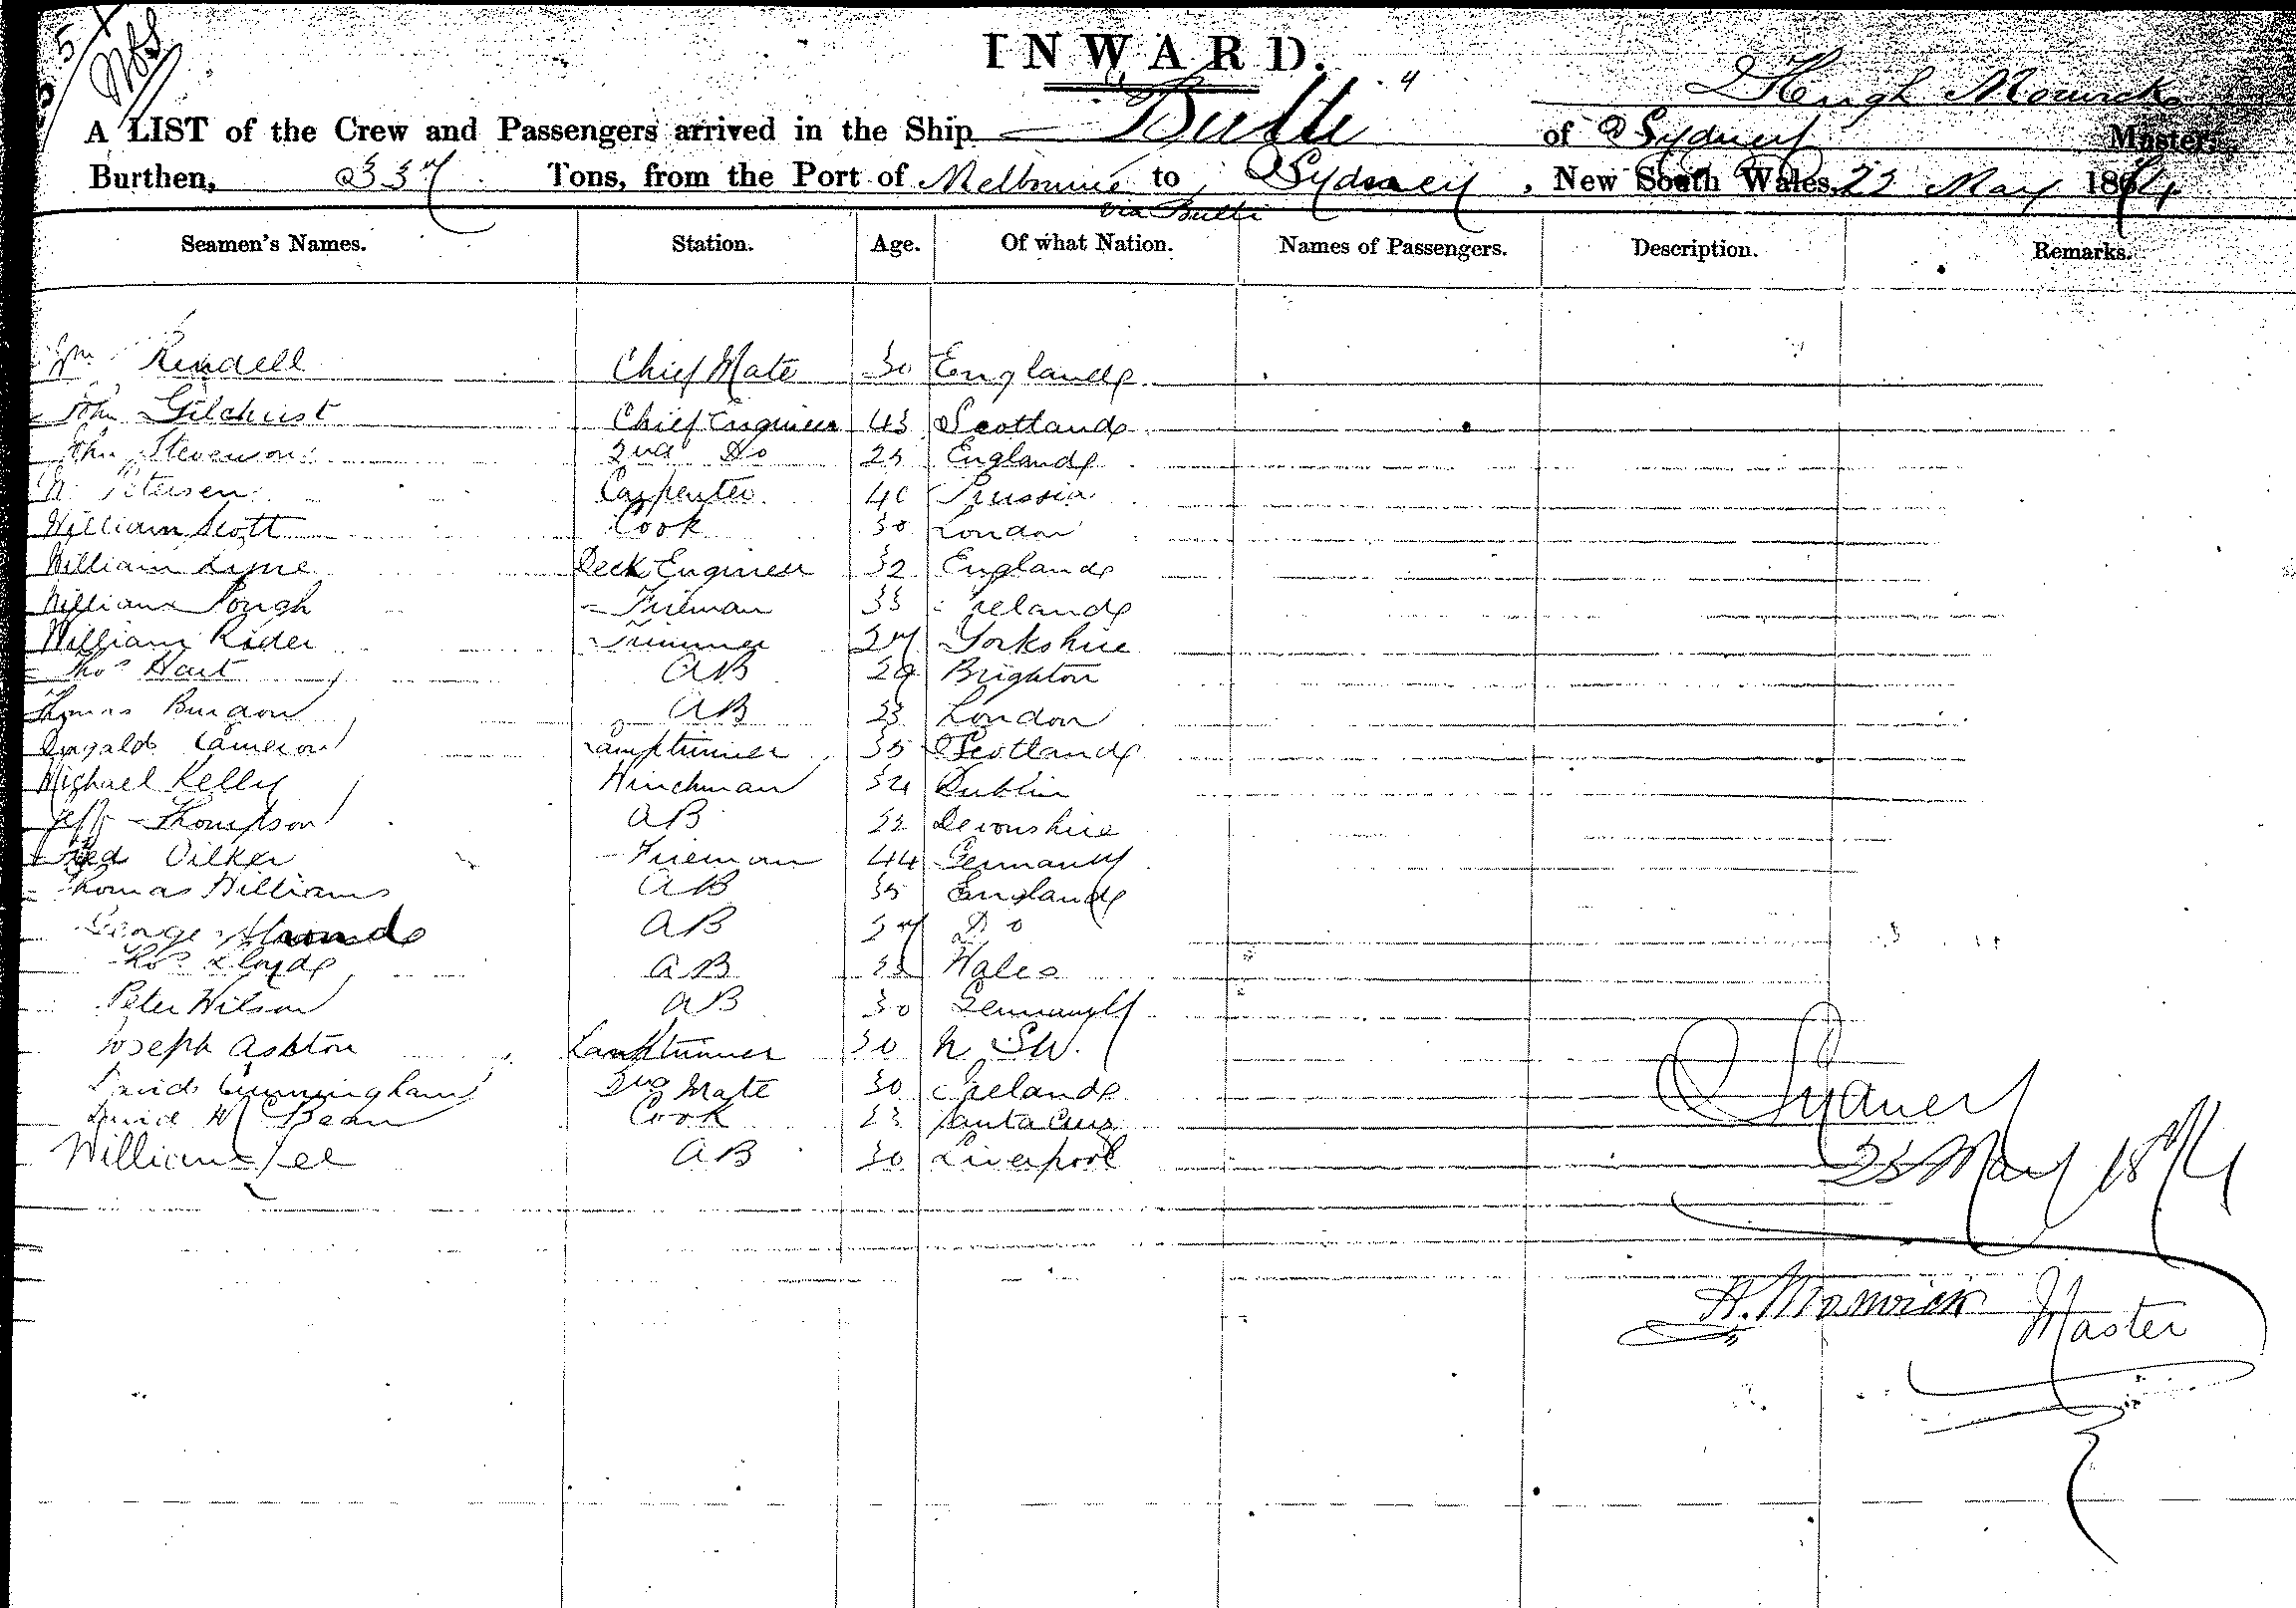 INWARD.
"Bulli" Hugh Monwick
A LIST of the Crew and Passengers arrived in the Ship of Sydney Master,
Burthen, 337 Tons, from the Port of Melbourne to Sydney, New South Wales, 23 May 1874
via Bulli
Seamen's Names. Station. Age. Of what Nation. Names of Passengers. Description. Remarks.
Wm Rendell Chief Mate 30 England
John Gilchrist Chief Engineer 43 Scotland
John Stevenson 2nd Do 25 England
Petersen Carpenter 40 Prussia
William Scott Cook 30 London
William Lyne Deck Engineer 32 England
William Pough Fireman 33 Ireland
William Rider Trimmer 27 Yorkshire
Thos Hart AB 29 Brighton
Thomas Burdon AB 23 London
Dugald Cameron Lamptrimmer 35 Scotland
Michael Kelly Winchman 34 Dublin
Jeff Thompson AB 22 Devonshire
Fred Vilker Fireman 44 Germany
Thomas Williams AB 35 England
George AB 37 Do
Thos Lloyd AB Wales
Peter Wilson AB 30 Germany
Joseph Ashton Lamptrimmer 30 N SW.
David Cunningham 2nd Mate 30 Ireland
David W Bean Cook 23 Santa Cruz
William Lee AB 30 Liverpool
Sydney
23 May 1874
H. Monwick Master